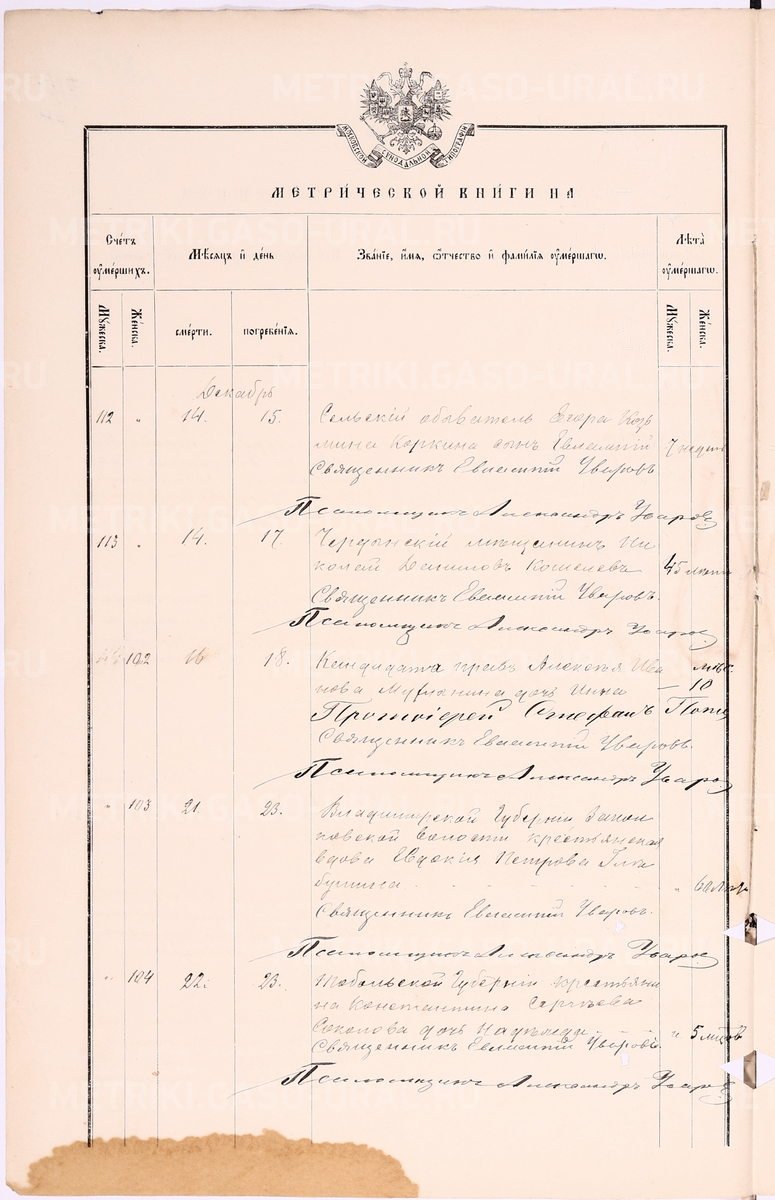 МОСКОВСКОЙ СѴНОДАЛЬНОЙ ТИПОГРАФІИ
МЕТРИ́ЧЕСКОЙ КНИ́ГИ НА
Счётъ ᲂу҆ме́ршихъ.
Мѣ́сѧцъ и҆ де́нь
Зва́нїе, и҆́мѧ, ѻ҆́тчество и҆ фами́лїѧ ᲂу҆ме́ршагѡ.
Лѣта̀ ᲂу҆ме́ршагѡ.
Мꙋ́жеска.
Же́нска.
сме́рти.
погребе́нїѧ.
Мꙋ́жеска.
Же́нска.
Декабрь
112 „ 14. 15. Сельскій обыватель Егора Козь
мина Коркина сынъ Евлампій 7 недѣль
Священникъ Евлампій Уваровъ
Псаломщикъ Александръ Уваровъ
113 „ 14. 17. Чердынскій мѣщанинъ Ни
колай Даниловъ Кошелевъ 45 лѣтъ
Священникъ Евлампій Уваровъ.
Псаломщикъ Александръ Уваровъ
102 16 18. Кандидата правъ Алексѣя Ива мѣс.
нова дочь Инна — 10
Протоіерей Стефанъ Попов
Священникъ Евлампій Уваровъ.
Псаломщикъ Александръ Уваров
„ 103 21. 23. Владимірской Губерніи
ковской волости крестьянская
вдова Евдокія Петрова
„ 60 лѣтъ
Священникъ Евлампій Уваровъ.
Псаломщикъ Александръ Уваров
„ 104 22. 23. Тобольской Губерніи крестьяни
на Константина Сергѣева
Соколова дочь Надежда „ 5 лѣтъ
Священникъ Евлампій Уваровъ.
Псаломщикъ Александръ Уваров
METRIKI.GASO-URAL.RU